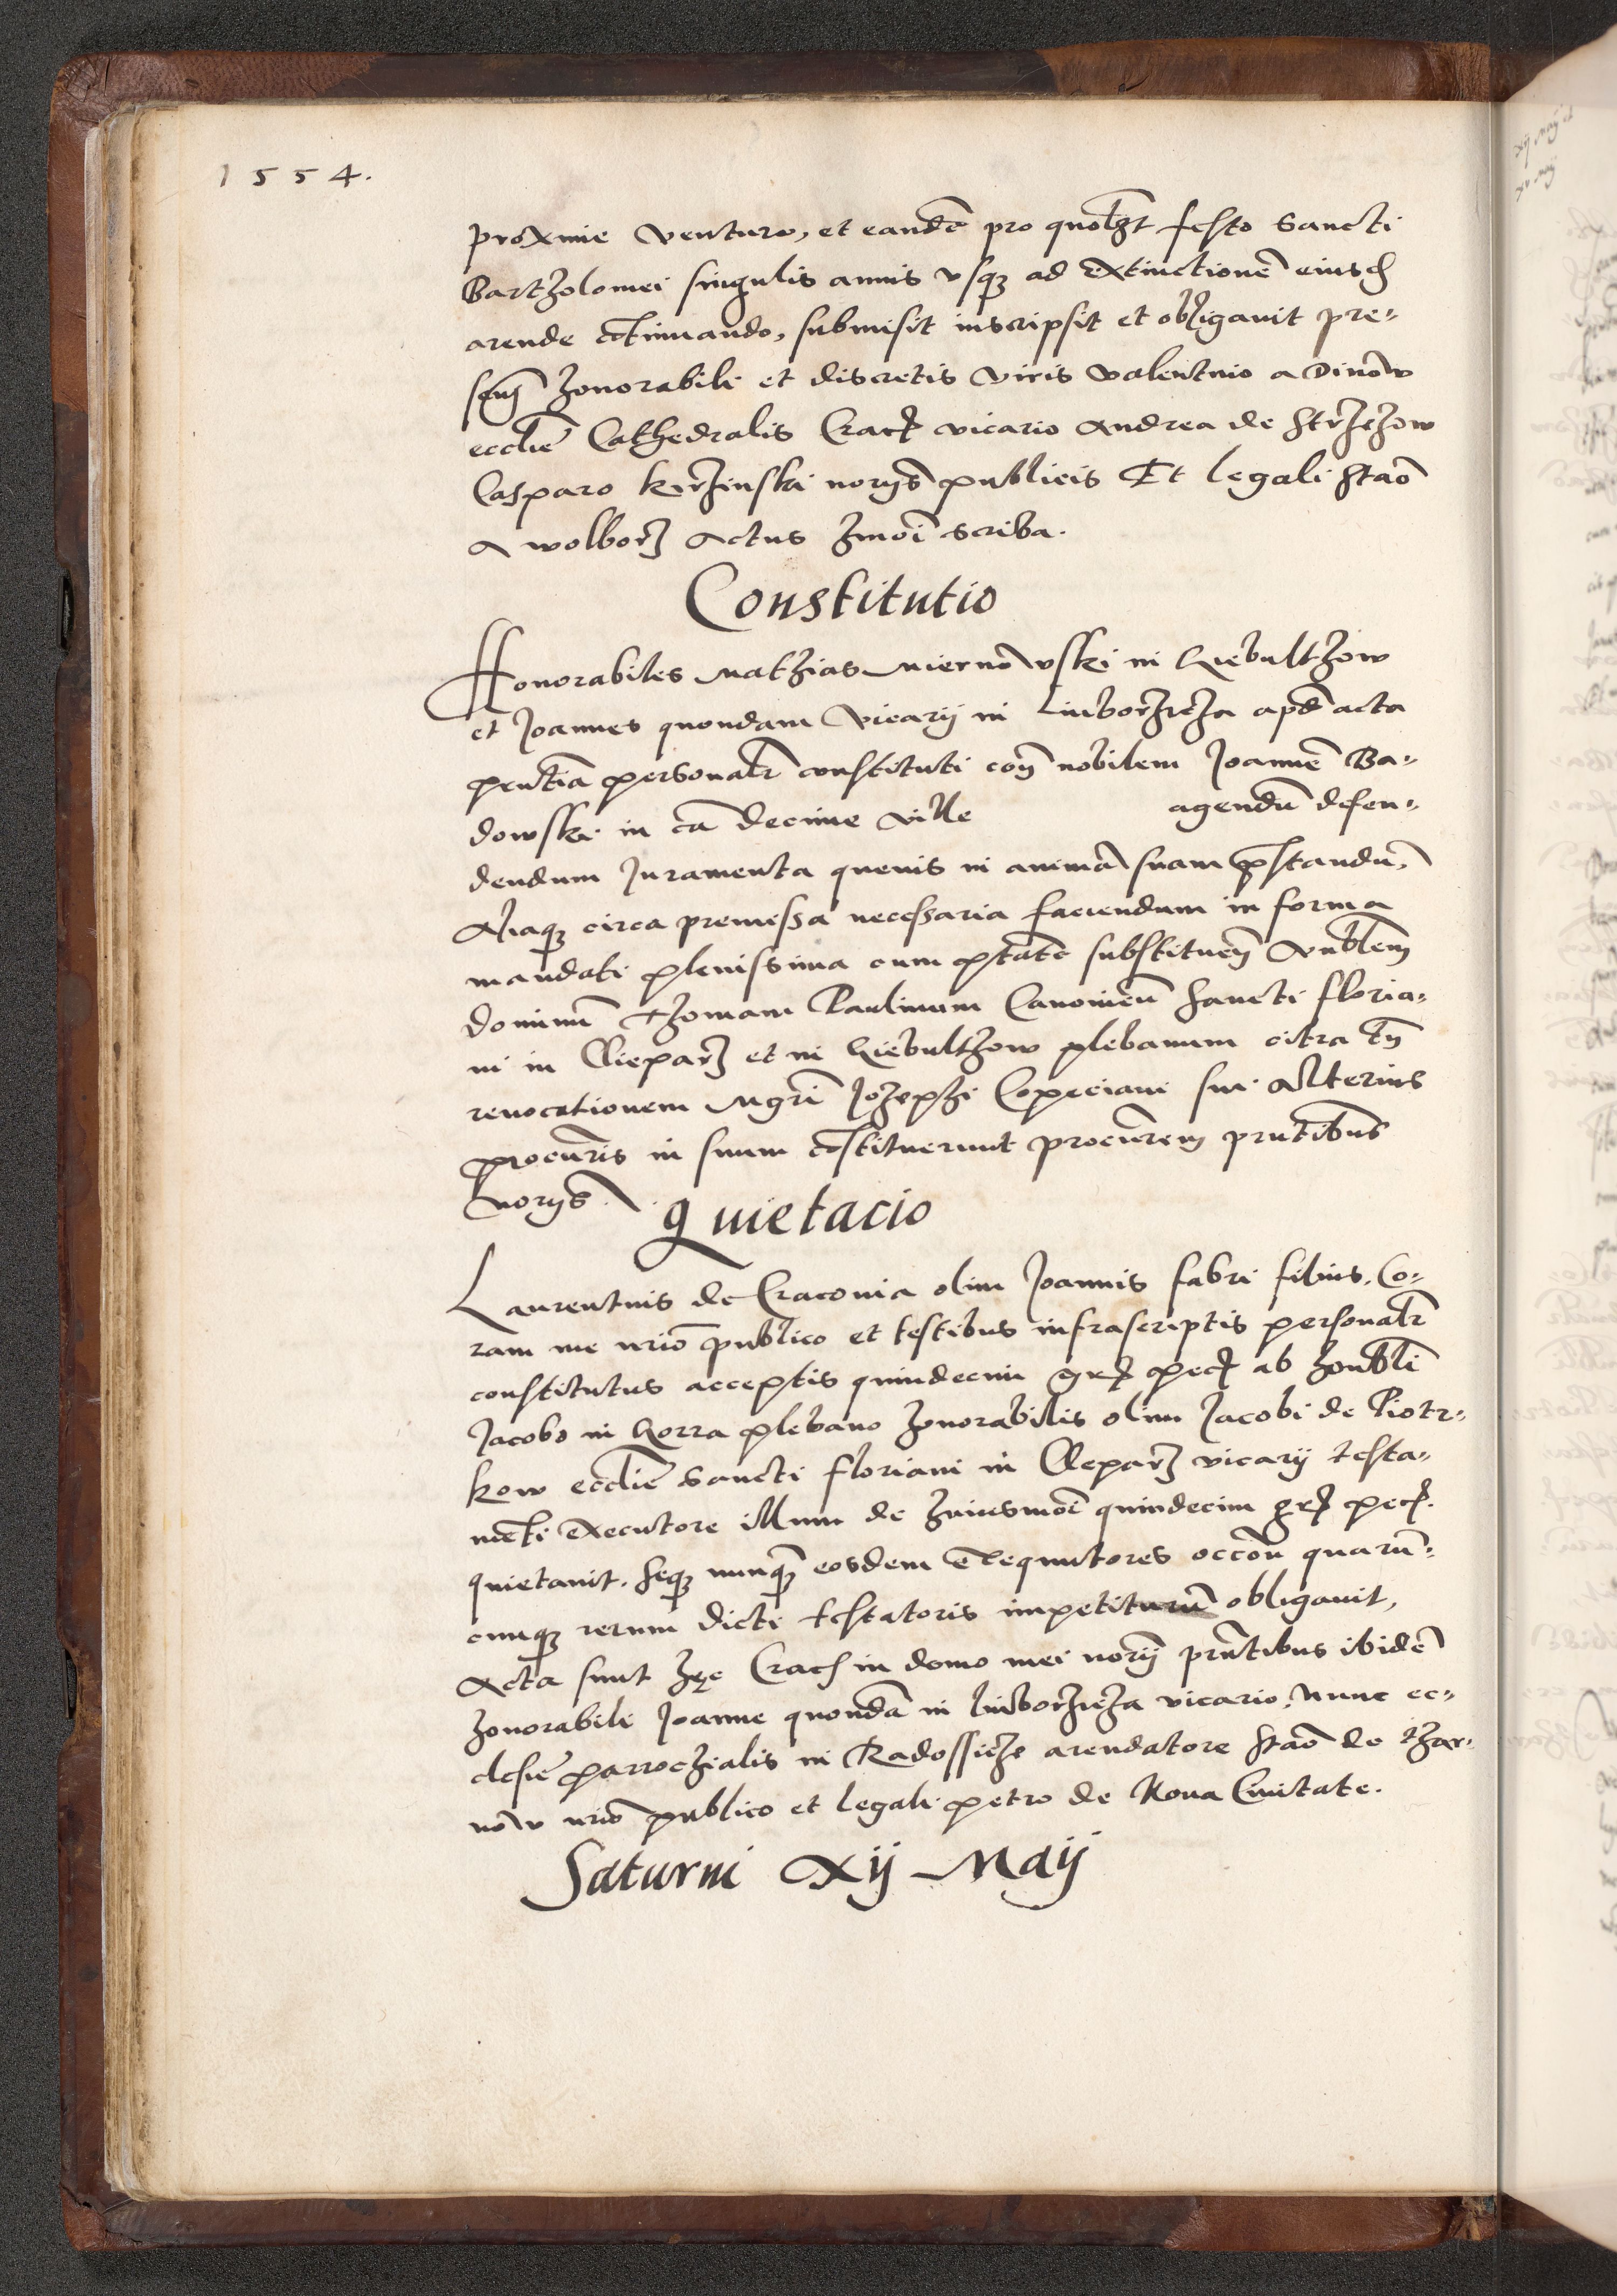 1554.
proxime venturo, et eandē pro quolȝt festo Sancti
Bartholomei singulis annis vsq; ad extinctionē eiusd
arende cōtinuando, submisit inscripsit et obligauit pre-
sen honorabili et discretis viris Valentino a Dinow
ecclie Cathedralis Crac vicario Andrea de Strzeżow
Casparo Kerżinski noryis publicis Et legali Stao
a wolborz Actus hmoi scriba.
Constitutio
Honorabiles Mathias Miernowski in Giebulthow
et Joannes quondam Vicarij in Luborzicza apd acta
pntia personalr constituti con nobilem Joannē Ba-
dowski in ca decime ville agendū defen-
dendum Juramenta queuis in animā suam pstandū,
Aliaq; circa premissa necessaria faciendum in forma
mandati plenissima cum ptate substituen Vnblem
dominū Thomam Paulinum Canonicū Sancti Floria-
ni in Clieparz et in Giebulthow plebanum citra tn
reuocationem Mgri Josephi Copeciani sui Alterius
procuris in suum cōstituerunt procurem pntibus
noryis.
Quietacio
Laurentius de Craconia olim Joannis fabri filius, Co-
ram me nrio publico et testibus infrascriptis personalr
constitutus acceptis quindecim gr pec ab honbli
Jacobo in Gorra plebano honorabilis olim Jacobi de Piotr-
kow ecclie Sancti Floriani in Cleparz vicarij testa-
mēti executore illum de huiusmoi quindecim gr pec.
quietauit. Seq; nunq; eosdem exequutores occon quarū-
cunq; rerum dicti testatoris impetiturū obligauit,
Acta sunt hęc Crac in domo mei noryi prntibus ibidē
honorabili Joanne quondā in Luborzicza vicario, nunc ec-
clesie parrochialis in Radossicze arendatore Stao de Thar-
now nrio publico et legali petro de Noua Ciuitate.
Saturni xij Maij